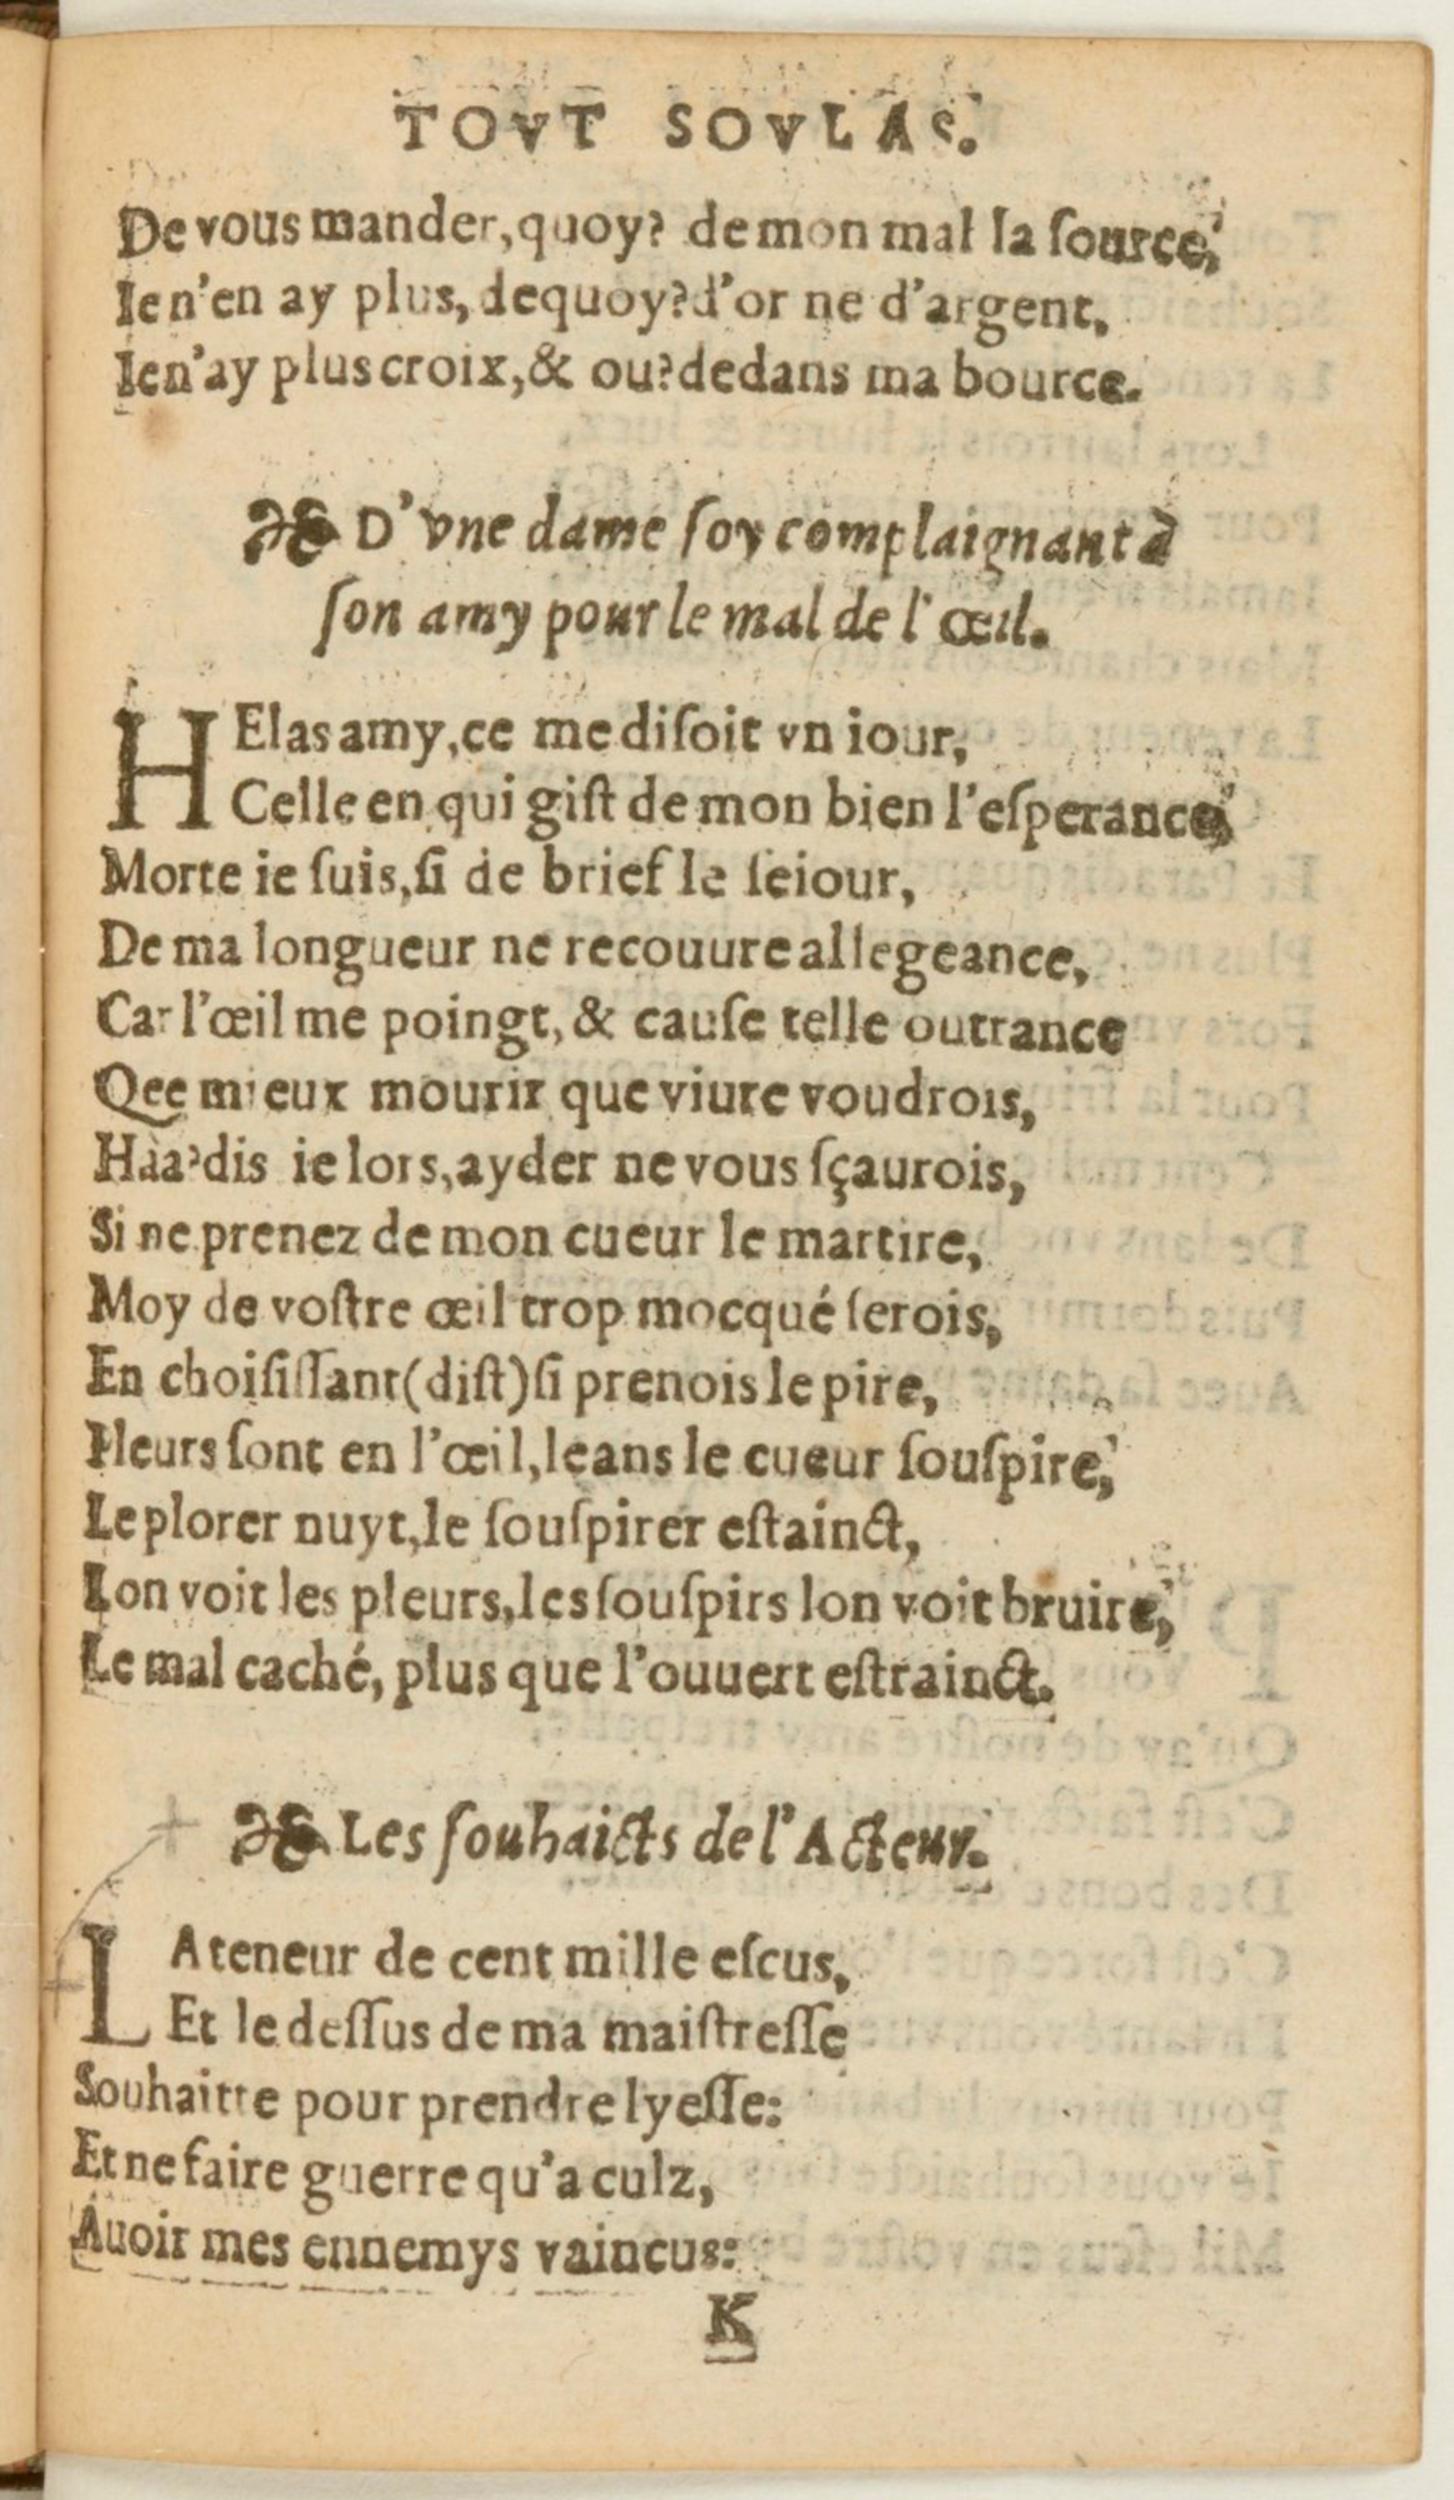 TOVT SOVLAS.
De vous mander, quoy? de mon mal la ſource,
Ie n'en ay plus, dequoy? d'or ne d'argent,
Ie n'ay plus croix, & ou? dedans ma bource.
D'vne dame ſoy complaignant à
ſon amy pour le mal de l'œil.
HElas amy, ce me diſoit vn iour,
Celle en qui giſt de mon bien l'eſperance,
Morte ie ſuis, ſi de brief le ſeiour,
De ma longueur ne recouure allegeance,
Car l'œil me poingt, & cauſe telle outrance
Qee mieux mourir que viure voudrois,
Haa? dis ie lors, ayder ne vous ſçaurois,
Si ne prenez de mon cueur le martire,
Moy de voſtre œil trop mocqué ſerois,
En choiſiſſant (diſt) ſi prenois le pire,
Pleurs ſont en l'œil, leans le cueur ſouſpire,
Le plorer nuyt, le ſouſpirer eſtainct,
Lon voit les pleurs, les ſouſpirs lon voit bruire,
Le mal caché, plus que l'ouuert eſtrainct.
Les ſouhaicts de l'Acteur.
LA teneur de cent mille eſcus,
Et le deſſus de ma maiſtreſſe
Souhaitte pour prendre lyeſſe:
Et ne faire guerre qu'a culz,
Auoir mes ennemys vaincus:
K